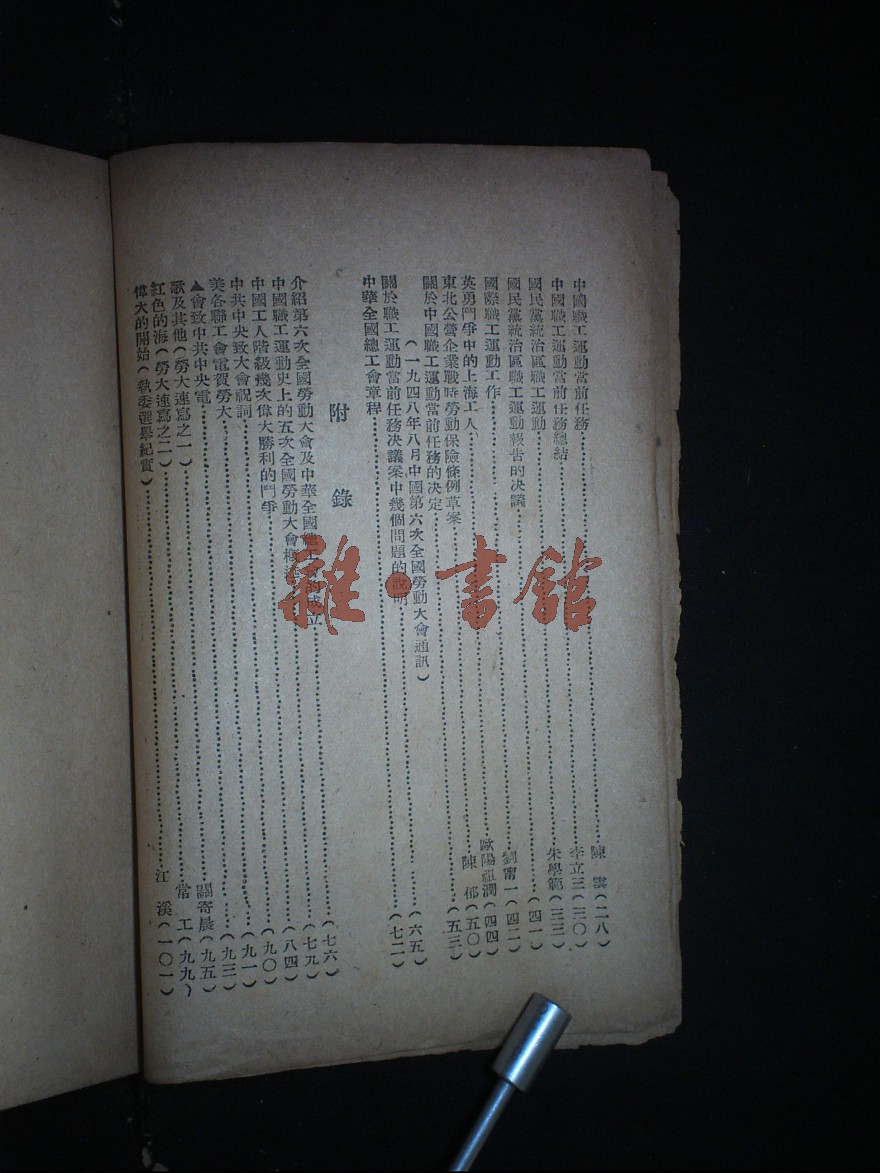 中國職工運動當前任務……陳　雲(二八)
中國職工運動當前任務總結……李立三(三〇)
國民黨統治區職工運動……朱學範(三三)
國民黨統治區職工運動報告的決議……(四一)
國際職工運動工作……劉甯一(四二)
英勇鬥爭中的上海工人……歐陽祖潤(四四)
東北公營企業戰時勞動保險條例草案……陳　郁(五〇)
關於中國職工運動當前任務的决定……(五三)
(一九四八年八月中國第六次全國勞動大會通訊)
關於職工運動當前任務決議案中幾個問題的說明……(六五)
中華全國總工會章程……(七二)
附　錄
介紹第六次全國勞動大會及中華全國總工會的成立……(七六)
中國職工運動史上的五次全國勞動大會概述……(七九)
中國工人階級幾次偉大勝利的鬥爭……(八四)
中共中央致大會祝詞……(九〇)
美各聯工會電賀勞大……(九一)
▲會致中共中央電……(九三)
歌及其他(勞大速寫之一)……關寄晨(九五)
紅色的海(勞大速寫之二)……常　工(九九)
偉大的開始(執委選舉紀實)……江　溪(一〇一)
雜·書館